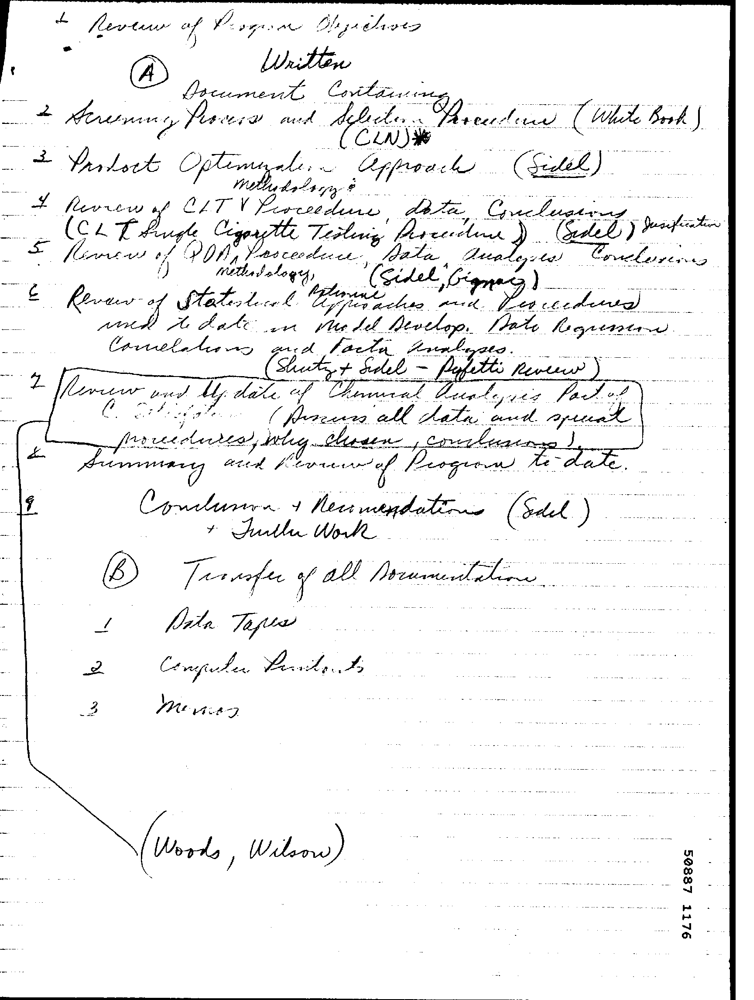 1 Review of Program Objectives
(A) Written
Document Containing
2 Screening Process and Selection Procedure (White Book)
(CLN)*
3 Product Optimization Approach (Sidel)
methodology
4 Review of CLT Proceedure, data, Conclusions
(CLT Single Cigarette Testing Procedure) (Sidel) Jusification
5 Review of QDA, Proceedure, Data analysis Conclusions
methodology, (Sidel,
6 Review of Statistical Rationale Approaches and Proceedures
used to date in Model Develop. Data Regression
Correlations and Factor analyses.
(Shutz + Sidel - Review)
7 Review and Update of Chemical Analysis Part of
C. (Discuss all data and special
procedures, why chosen, conclusions).
8 Summary and Review of Program to date.
9 Conclusion + Recommendations (Sidel)
+ Further Work
(B) Transfer of all Documentation
1 Data Tapes
2 Computer Printouts
3 Memos
(Woods, Wilson)
50887 1176